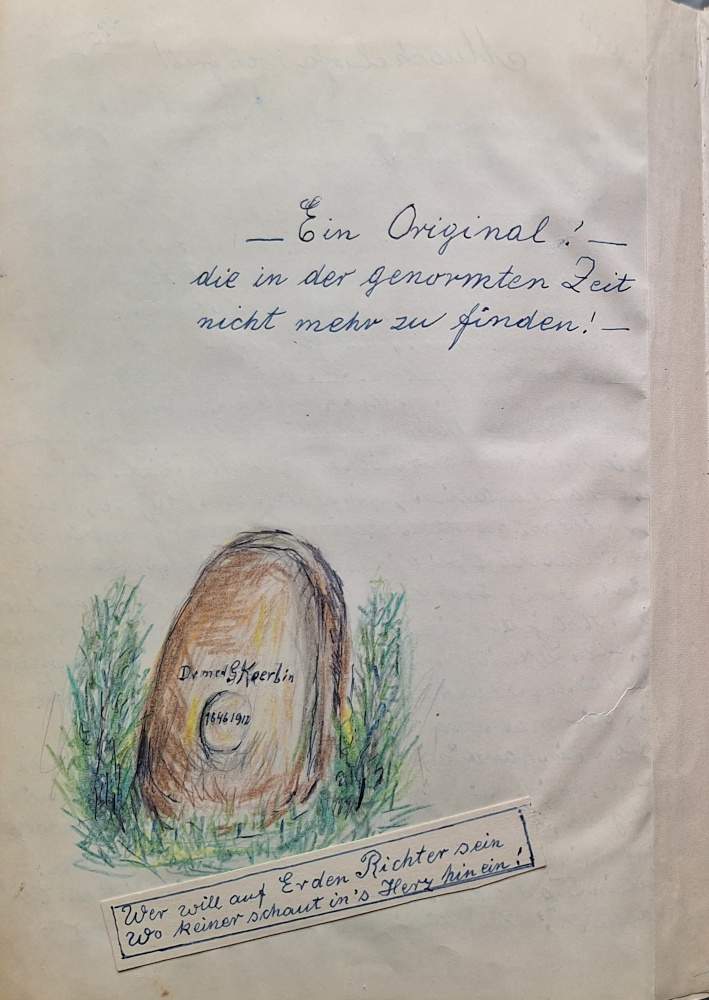 — Ein Original! —
die in der genormten Zeit
nicht mehr zu finden! —
Dr med G Koerbin
1846 1912
Wer will auf Erden Richter sein
Wo keiner schaut in's Herz hinein!